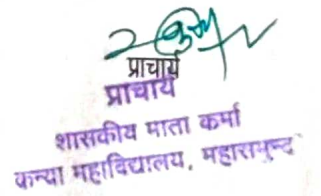 प्राचार्य
प्राचार्य
शासकीय माता कर्मा
कन्या महाविद्यालय, महासमुन्द